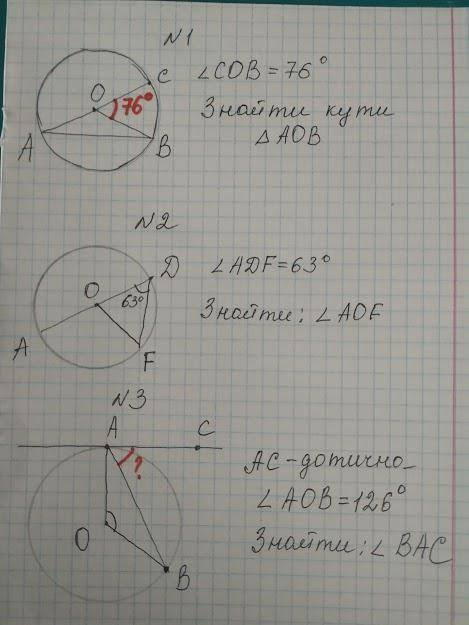 N1
C
O 76°
A
B
∠COB = 76°
Знайти кути
△AOB
N2
D
O
63°
A
F
∠ADF = 63°
Знайти: ∠AOF
N3
A
C
?
O
B
AC - дотично_
∠AOB = 126°
Знайти: ∠BAC